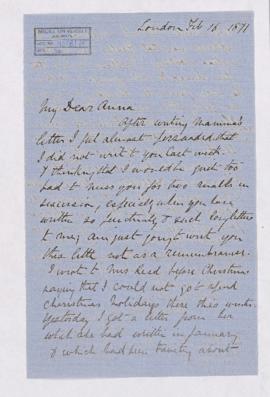 McGILL UNIVERSITY
ARCHIVES
ACC. NO.
REF.
London Feb 16, 1871
My Dear Anna
After writing Mamma's
letter I felt almost persuaded that
I did not write to you last week.
& thinking that it would be quite too
bad to miss you for two mails in
succession, especially when you have
written so punctually & such long letters
to me, I am just going to write you
this little note as a remembrance.
I wrote to Mrs Reid before Christmas
saying that I could not go to spend
Christmas holidays there this winter
Yesterday I got a letter from her
what she had written in January
& which had been travelling about